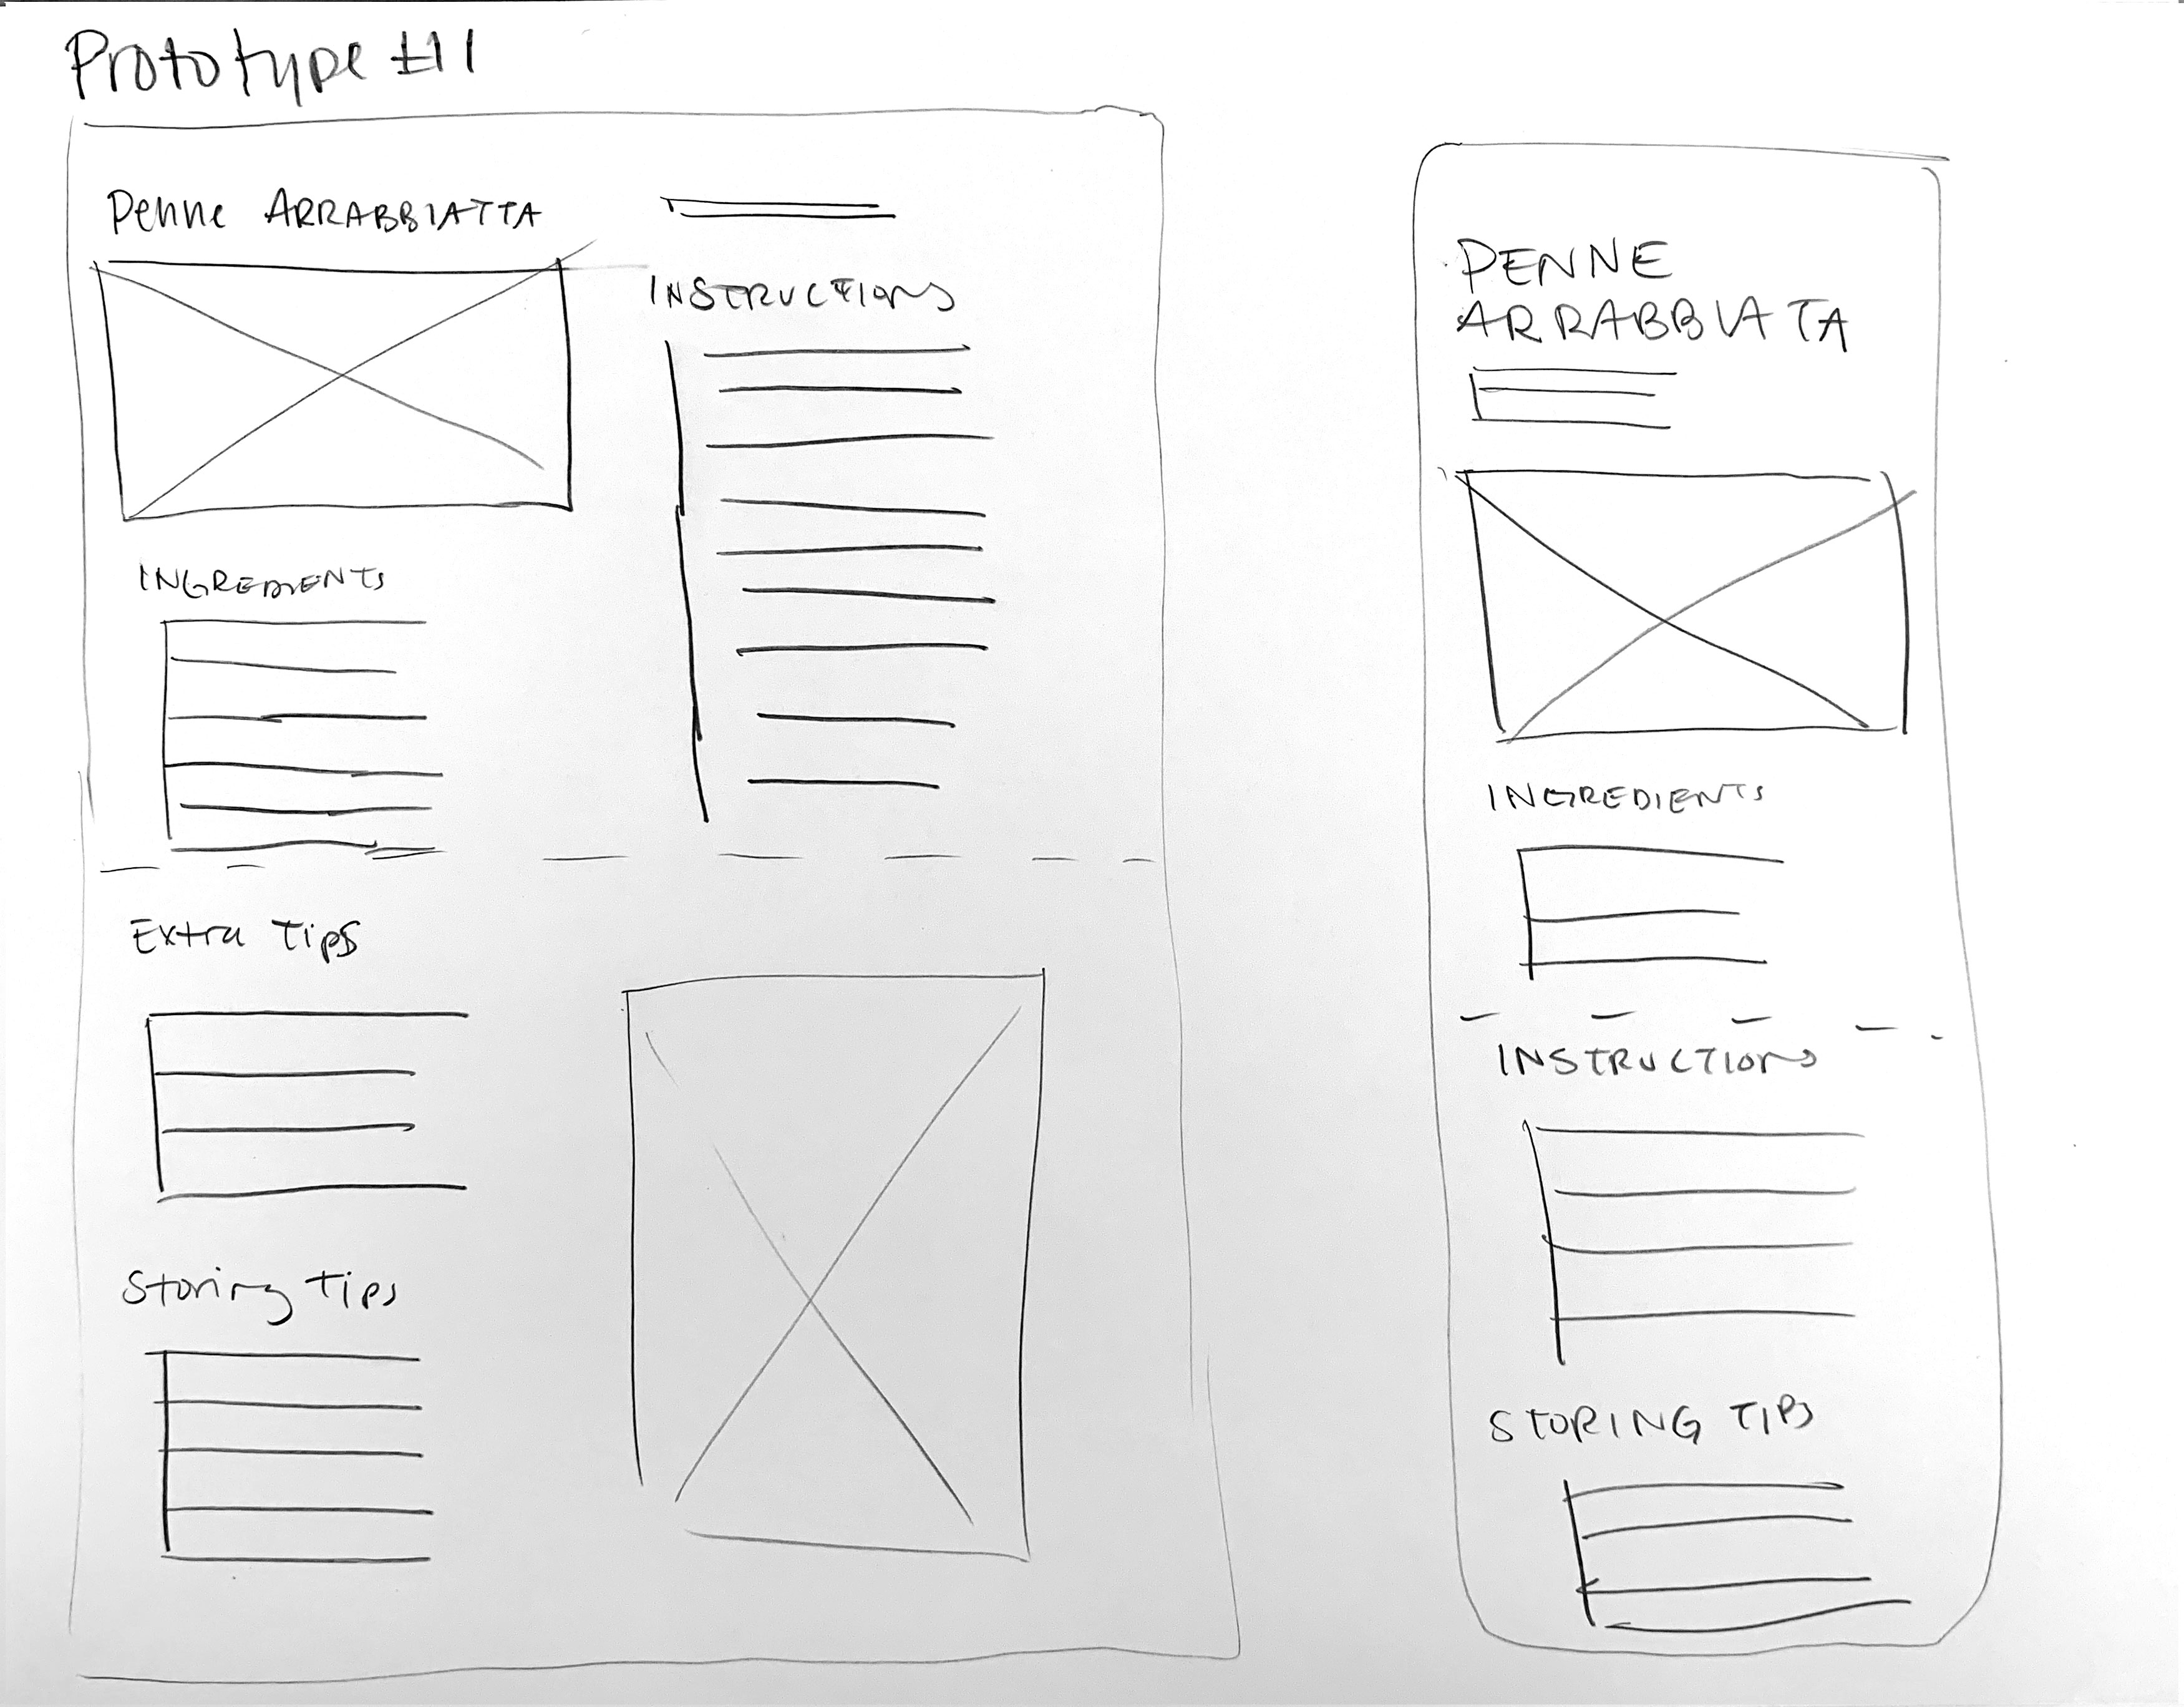 Prototype #1
Penne ARRABBIATTA
INSTRUCTIONS
INGREDIENTS
Extra Tips
Storing Tips
PENNE
ARRABBIATA
INGREDIENTS
INSTRUCTIONS
STORING TIPS